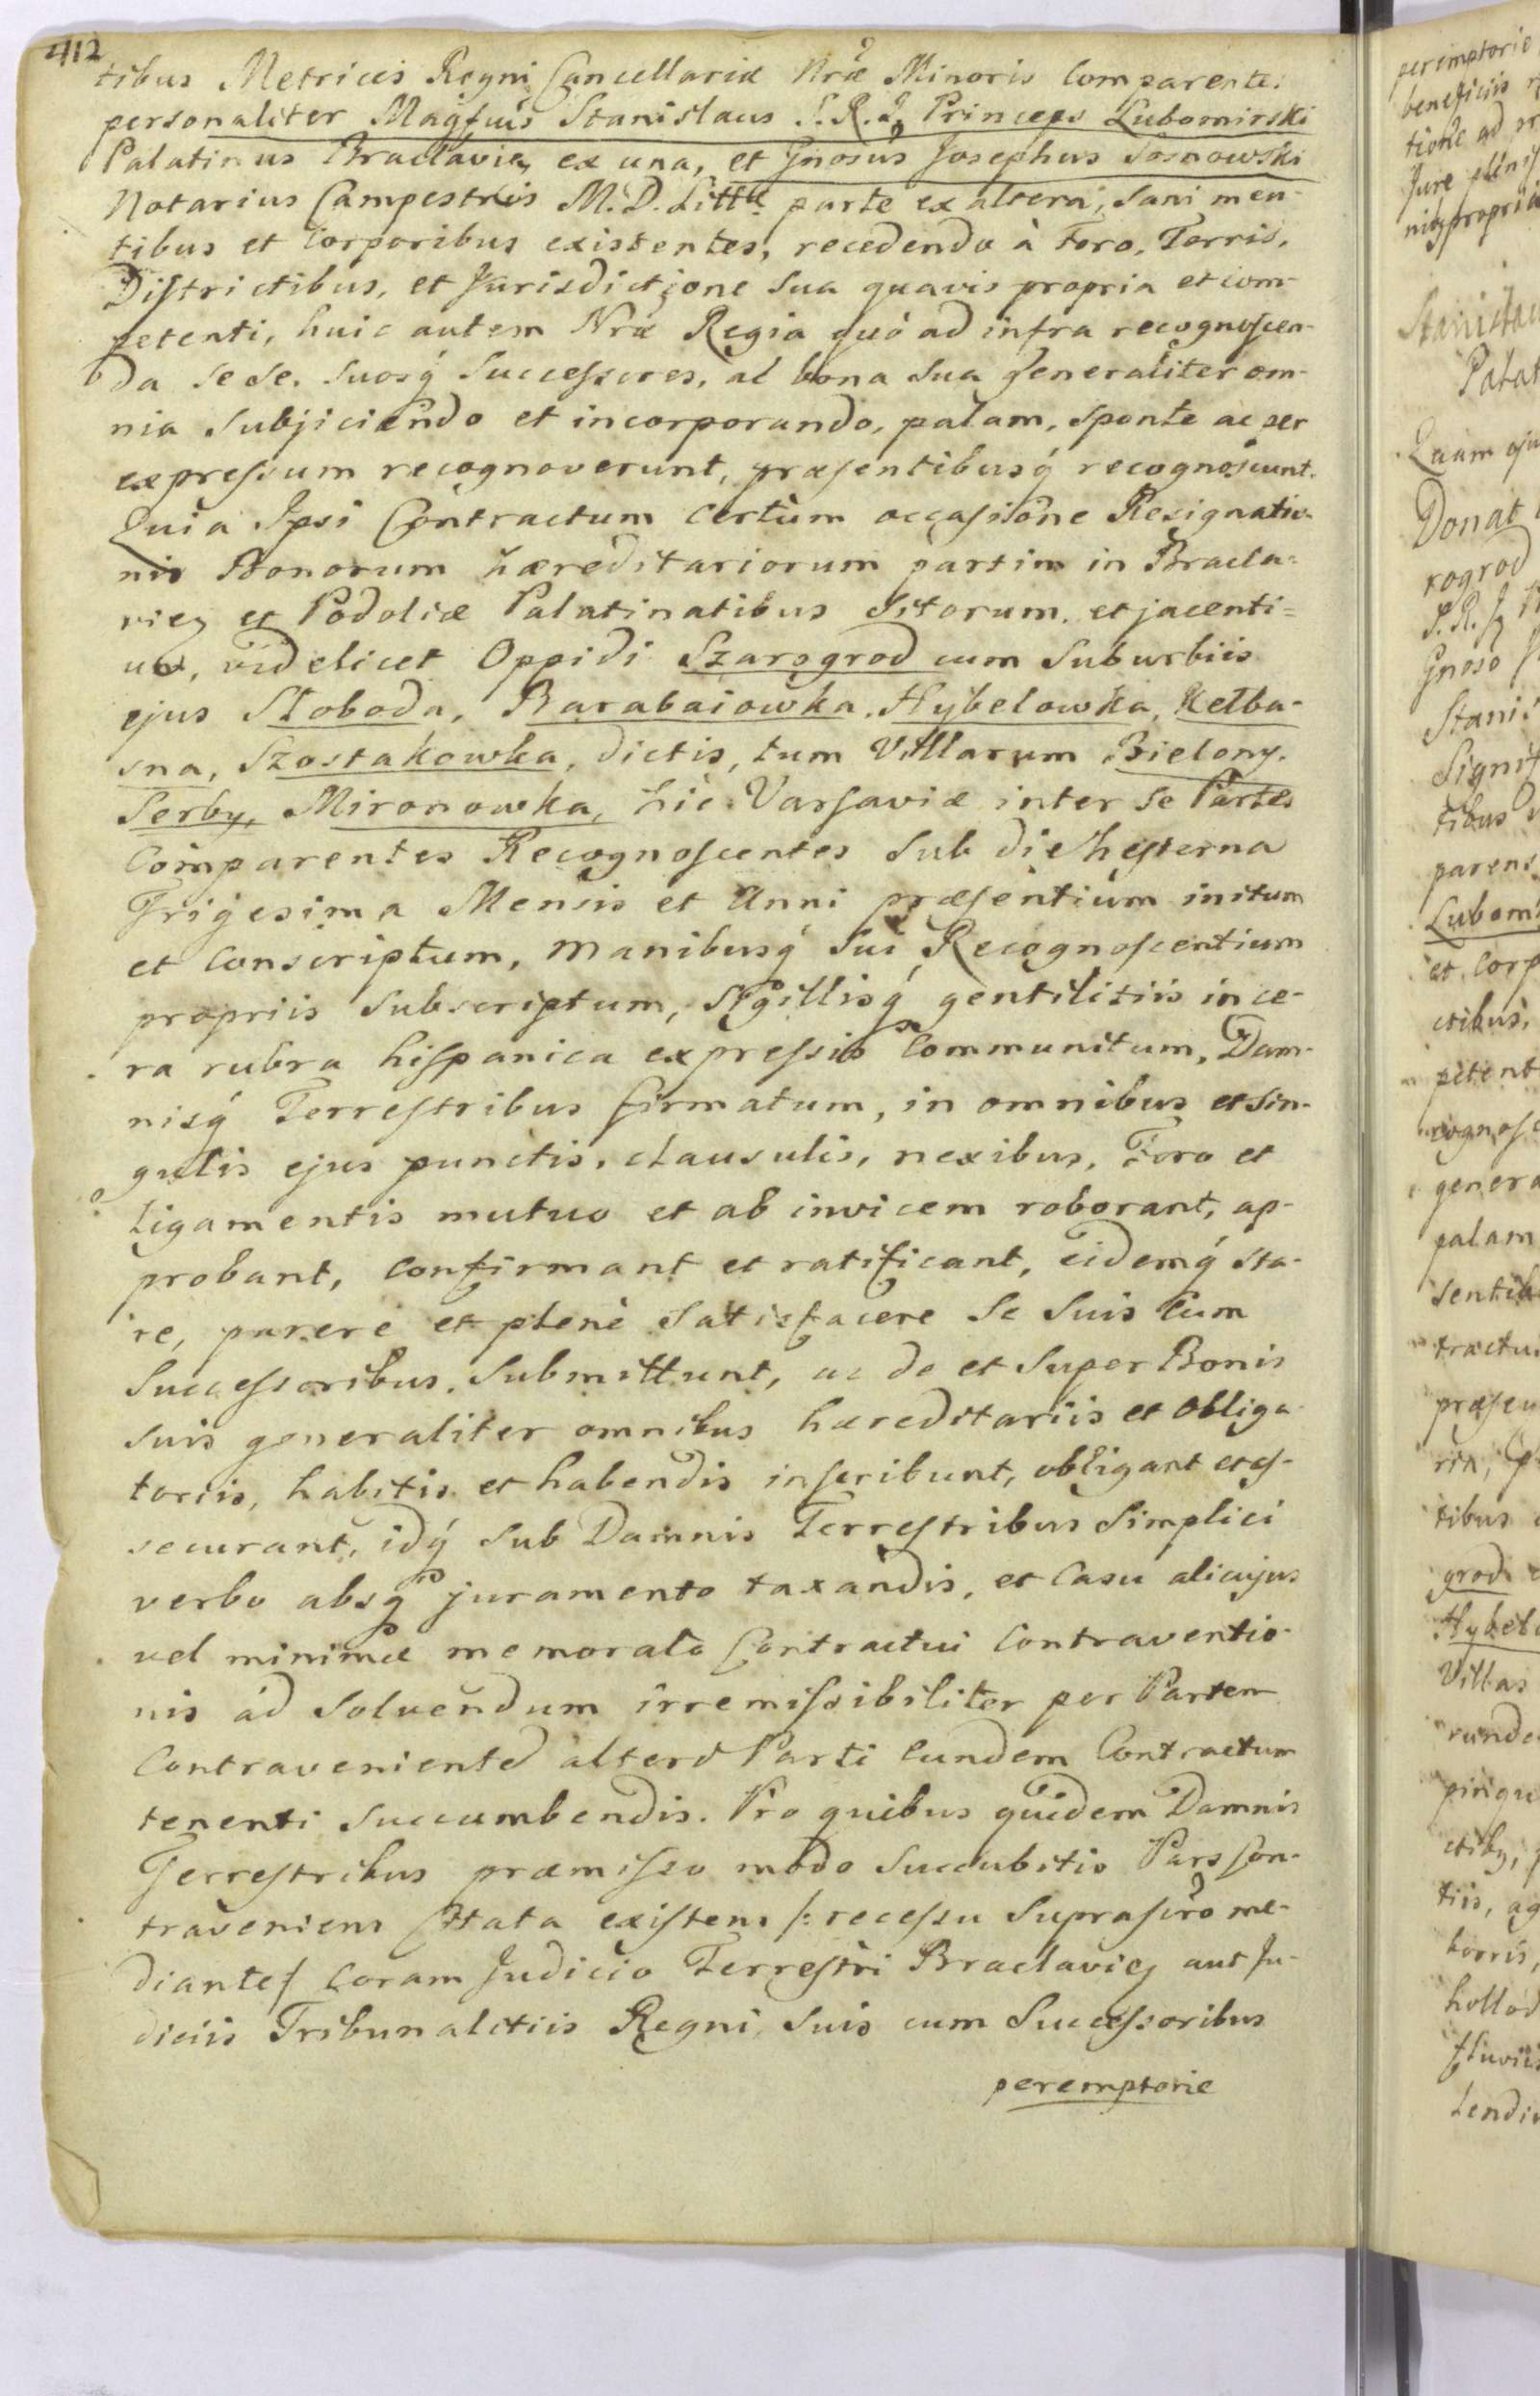 412
tibus Metrices Regni Cancellariæ Nræ Minoris Comparentes
personaliter Magfcus Stanislaus S.R.I. Princeps Lubomirski
Palatinus Braclaviæ ex una, et Gnosus Josephus Sosnowski
Notarius Campestris M.D. Littæ parte ex altera, sani men-
tibus et Corporibus existentes, recedendo à Foro, Terris,
Districtibus, et Jurisdictione sua quavis propria et com-
petenti, huic autem Nræ Regiæ quo ad infra recognoscen-
da sese, suosq́ Successores, ac bona sua generaliter om-
nia subjiciendo et incorporando, palam, sponte ac per
expressum recognoverunt, præsentibusq́ recognoscunt.
Quia Ipsi Contractum certum occasione Resignatio-
nis Bonorum hæreditariorum partim in Bracla-
viæ et Podoliæ Palatinatibus sitorum, et jacenti=
um, videlicet Oppidi Szarogrod cum suburbiis
ejus Słoboda, Barabaiowka, Hybelowka, Kełba-
sna, Szostakowka, dictis, tum Villarum Bielony,
Serby, Mironowka, hic Varsaviæ inter se Partes
Comparentes Recognoscentes sub die hesterna
Trigesima Mensis et Anni præsentium initum
et Conscriptum, manibusq́ sui Recognoscentium
propriis subscriptum, Sigillisq́ gentilitiis in ce-
ra rubra hispanica expressis Communitum, Dam-
nisq́ Terrestribus firmatum, in omnibus et sin-
gulis ejus punctis, clausulis, nexibus, Foro et
ligamentis mutuo et ab invicem roborant, ap-
probant, confirmant et ratificant, eidemq́ sta-
re, parere et plenè satisfacere se suis cum
Successoribus submittunt, ac de et super Bonis
suis generaliter omnibus hæreditariis et obliga-
toriis, habitis et habendis inscribunt, obligant et as-
securant, idq́ sub Damnis Terrestribus simplici
verbo absq́ juramento taxandis, et casu alicujus
vel minimæ memorato Contractui Contraventio-
nis ad solvendum irremissibiliter per Partem
Contravenientem alteræ Parti eundem Contractum
tenenti succumbendis. Pro quibus quidem Damnis
Terrestribus præmisso modo succubitis Pars Con-
traveniens Citata existens /: recessu suprascro me-
diante/ Coram Judicio Terrestri Braclaviæ aut Ju-
diciis Tribunalitiis Regni, suis cum Successoribus
peremptorie